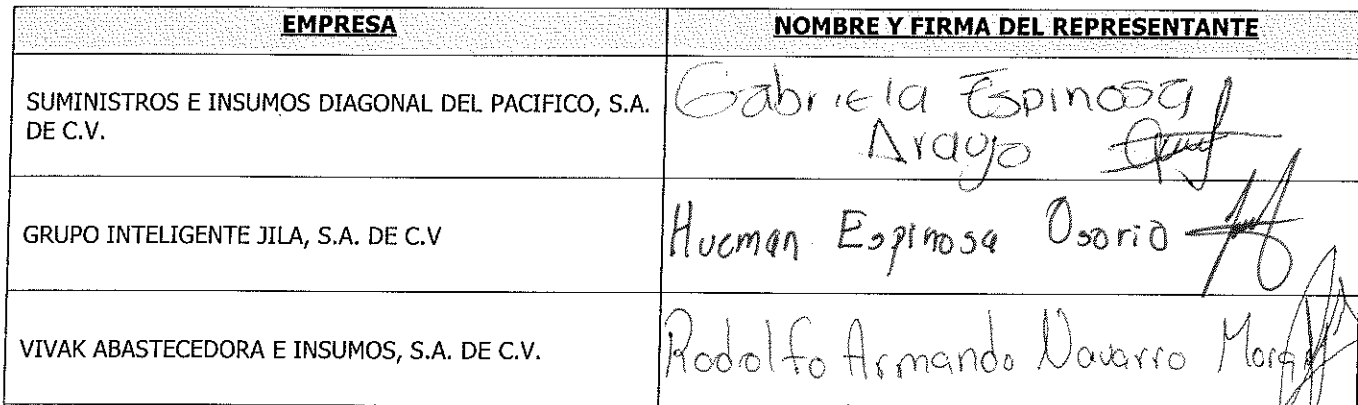 EMPRESA NOMBRE Y FIRMA DEL REPRESENTANTE
SUMINISTROS E INSUMOS DIAGONAL DEL PACIFICO, S.A.
DE C.V.
Gabriela Espinosa
Araujo
GRUPO INTELIGENTE JILA, S.A. DE C.V
Huemán Espinosa Osorio
VIVAK ABASTECEDORA E INSUMOS, S.A. DE C.V.
Rodolfo Armando Navarro